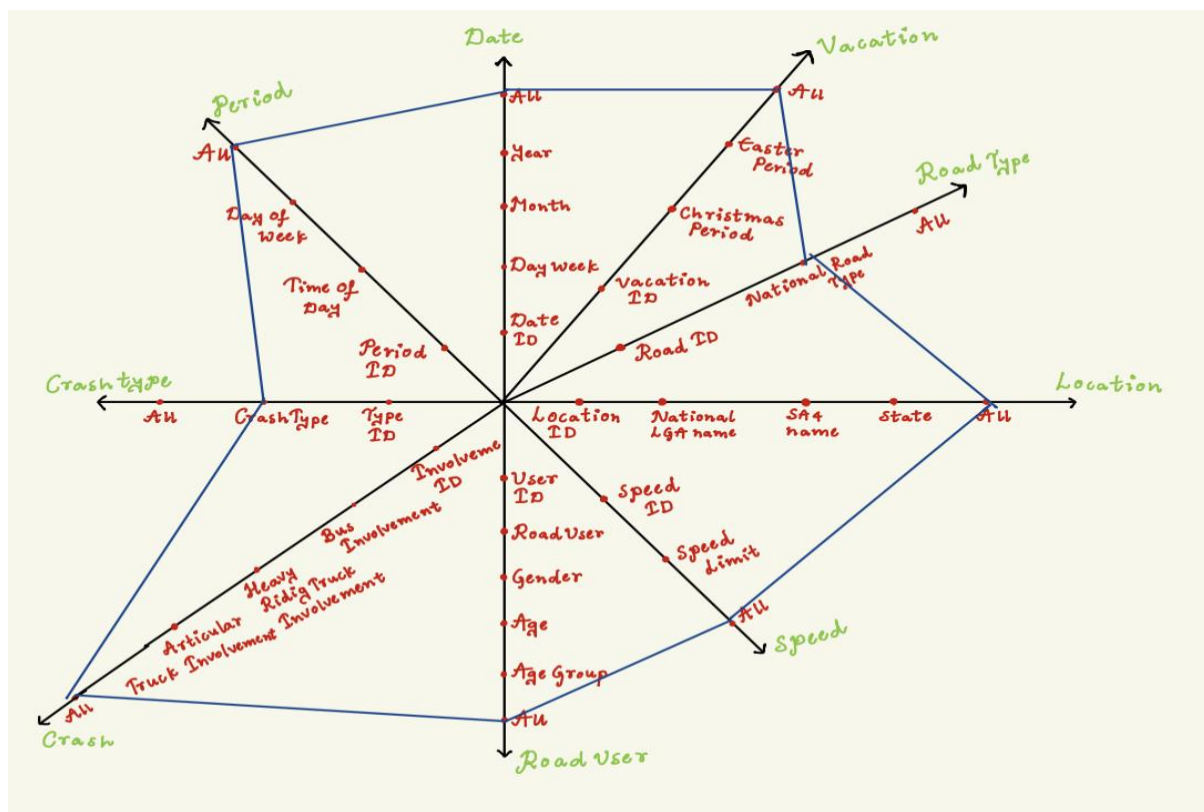 Date
All
Year
Month
Day Week
Date
ID
Vacation
All
Easter
Period
Christmas
Period
Vacation
ID
Road Type
All
National Road
Type
Road ID
Location
Location
ID
National
LGA name
SA4
name
State
All
Speed
ID
Speed
Limit
All
Speed
User
ID
Road User
Gender
Age
Age Group
All
Road User
Involveme
ID
Bus
Involvement
Heavy
Ridig Truck
Involvement
Articular
Truck Involvement
All
Crash
Crash type
All
Crash Type
Type
ID
Period
All
Day of
Week
Time of
Day
Period
ID